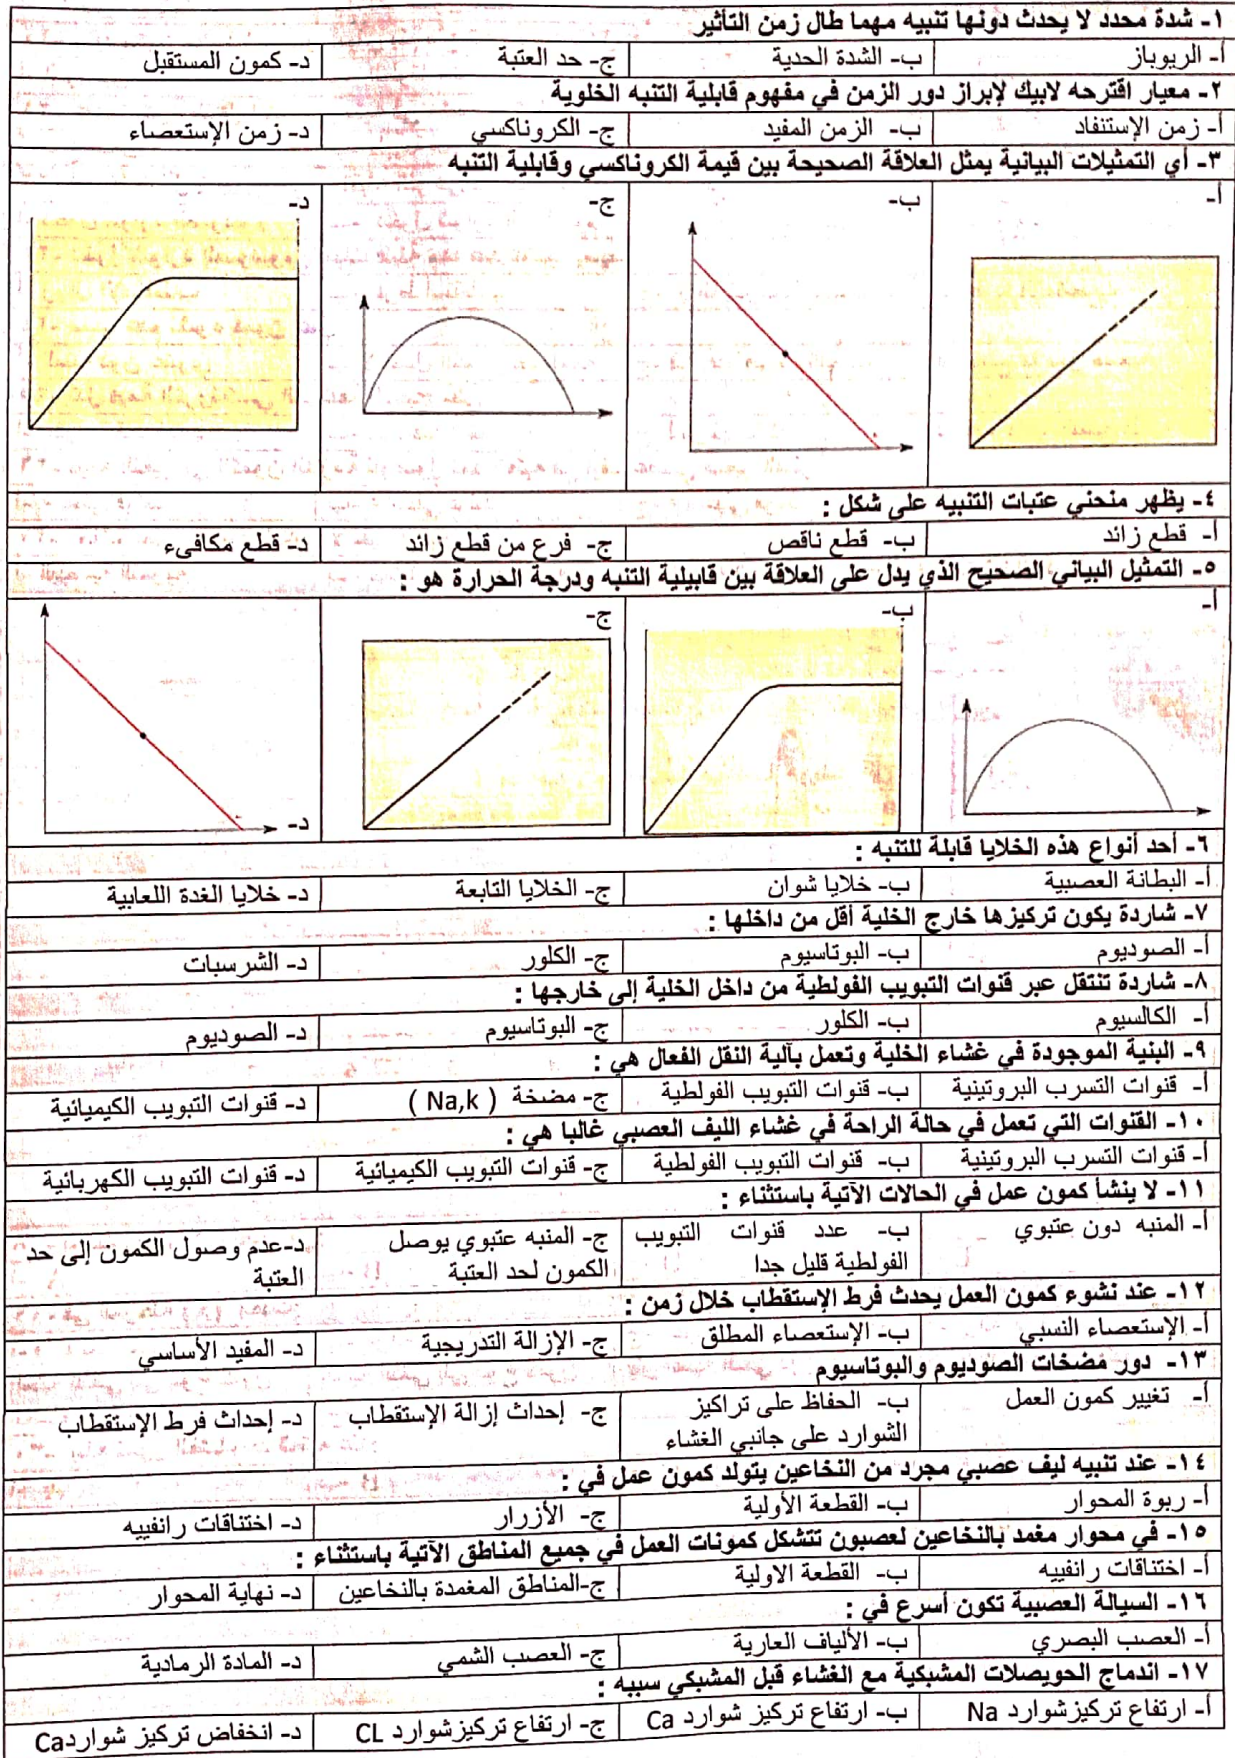 ١- شدة محدد لا يحدث دونها تنبيه مهما طال زمن التأثير
أ- الريوباز ب- الشدة الحدية ج- حد العتبة د- كمون المستقبل
٢- معيار اقترحه لابيك لإبراز دور الزمن في مفهوم قابلية التنبه الخلوية
أ- زمن الإستنفاد ب- الزمن المفيد ج- الكروناكسي د- زمن الإستعصاء
٣- أي التمثيلات البيانية يمثل العلاقة الصحيحة بين قيمة الكروناكسي وقابلية التنبه
أ- ب- ج- د-
٤- يظهر منحني عتبات التنبيه على شكل :
أ- قطع زائد ب- قطع ناقص ج- فرع من قطع زائد د- قطع مكافىء
٥- التمثيل البياني الصحيح الذي يدل على العلاقة بين قابيلية التنبه ودرجة الحرارة هو :
أ- ب- ج- د-
٦- أحد أنواع هذه الخلايا قابلة للتنبه :
أ- البطانة العصبية ب- خلايا شوان ج- الخلايا التابعة د- خلايا الغدة اللعابية
٧- شاردة يكون تركيزها خارج الخلية أقل من داخلها :
أ- الصوديوم ب- البوتاسيوم ج- الكلور د- الشرسبات
٨- شاردة تنتقل عبر قنوات التبويب الفولطية من داخل الخلية إلى خارجها :
أ- الكالسيوم ب- الكلور ج- البوتاسيوم د- الصوديوم
٩- البنية الموجودة في غشاء الخلية وتعمل بآلية النقل الفعال هي :
أ- قنوات التسرب البروتينية ب- قنوات التبويب الفولطية ج- مضخة ( Na,k ) د- قنوات التبويب الكيميائية
١٠- القنوات التي تعمل في حالة الراحة في غشاء الليف العصبي غالبا هي :
أ- قنوات التسرب البروتينية ب- قنوات التبويب الفولطية ج- قنوات التبويب الكيميائية د- قنوات التبويب الكهربائية
١١- لا ينشأ كمون عمل في الحالات الآتية باستثناء :
أ- المنبه دون عتبوي ب- عدد قنوات التبويب ج- المنبه عتبوي يوصل د-عدم وصول الكمون إلى حد
الفولطية قليل جدا الكمون لحد العتبة العتبة
١٢- عند نشوء كمون العمل يحدث فرط الإستقطاب خلال زمن :
أ- الإستعصاء النسبي ب- الإستعصاء المطلق ج- الإزالة التدريجية د- المفيد الأساسي
١٣- دور مضخات الصوديوم والبوتاسيوم
أ- تغيير كمون العمل ب- الحفاظ على تراكيز ج- إحداث إزالة الإستقطاب د- إحداث فرط الإستقطاب
الشوارد على جانبي الغشاء
١٤- عند تنبيه ليف عصبي مجرد من النخاعين يتولد كمون عمل في :
أ- ربوة المحوار ب- القطعة الأولية ج- الأزرار د- اختناقات رانفييه
١٥- في محوار مغمد بالنخاعين لعصبون تتشكل كمونات العمل في جميع المناطق الآتية باستثناء :
أ- اختناقات رانفييه ب- القطعة الاولية ج-المناطق المغمدة بالنخاعين د- نهاية المحوار
١٦- السيالة العصبية تكون أسرع في :
أ- العصب البصري ب- الألياف العارية ج- العصب الشمي د- المادة الرمادية
١٧- اندماج الحويصلات المشبكية مع الغشاء قبل المشبكي سببه :
أ- ارتفاع تركيزشوارد Na ب- ارتفاع تركيز شوارد Ca ج- ارتفاع تركيزشوارد CL د- انخفاض تركيز شواردCa